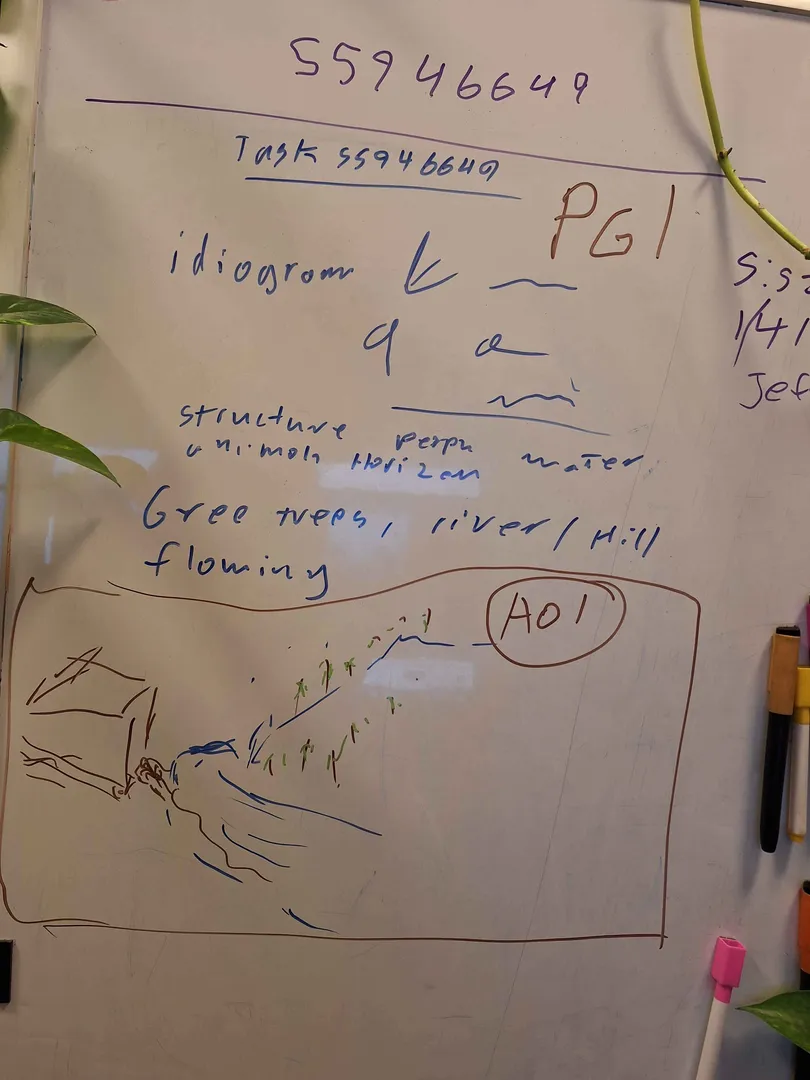 55946649
Task 55946649
PG1
idiogram
structure perpn water
animals Horizen
Gree trees, river/Hill
flowing
A01
1/41
Jef